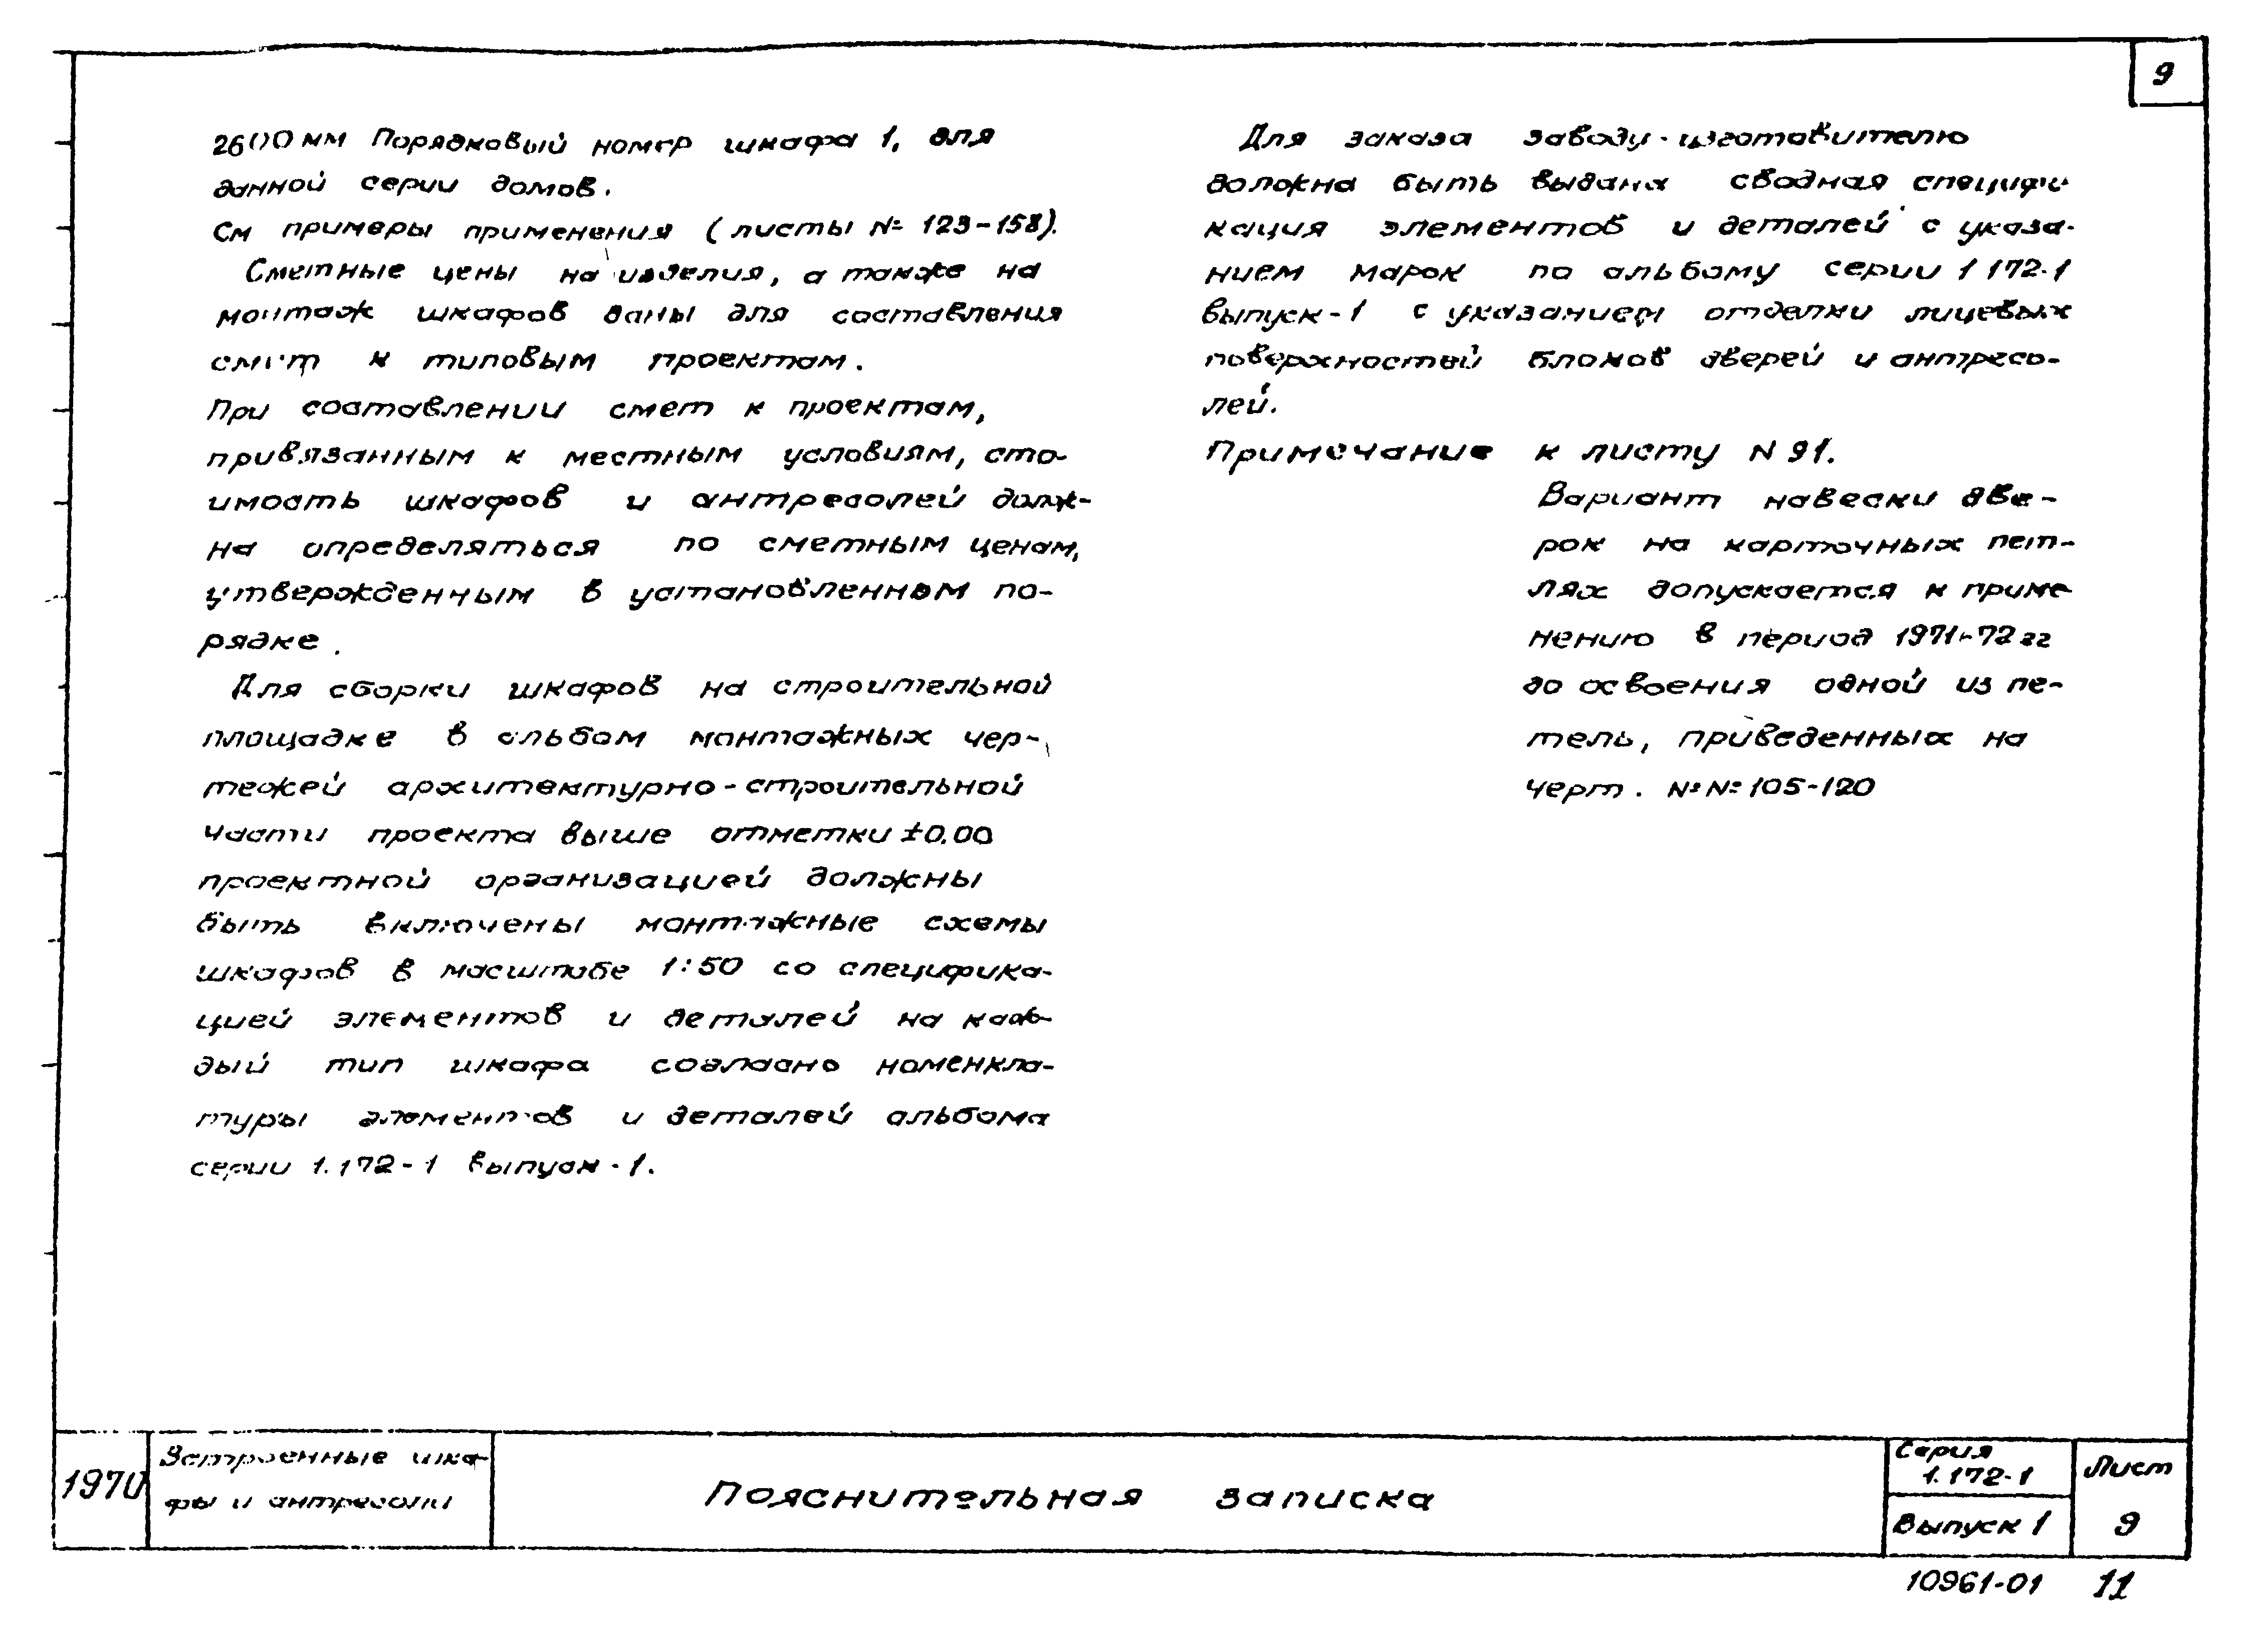 9
2600 мм Порядковый номер шкафа 1, для
данной серии домов.
См примеры применения (листы № 123-158).
Сметные цены на изделия, а также на
монтаж шкафов даны для составления
смет к типовым проектам.
При составлении смет к проектам,
привязанным к местным условиям, сто-
имость шкафов и антресолей долж-
на определяться по сметным ценам,
утвержденным в установленном по-
рядке.
Для сборки шкафов на строительной
площадке в альбом монтажных чер-
тежей архитектурно-строительной
части проекта выше отметки ±0.00
проектной организацией должны
быть включены монтажные схемы
шкафов в масштабе 1:50 со специфика-
цией элементов и деталей на каж-
дый тип шкафа согласно номенкла-
туры элементов и деталей альбома
серии 1.172-1 выпуск-1.
Для заказа заводу-изготовителю
должна быть выдана сводная специфи-
кация элементов и деталей с указа-
нием марок по альбому серии 1 172-1
выпуск-1 с указанием отделки лицевых
поверхностей блоков дверей и антресо-
лей.
Примечание к листу N 91.
Вариант навески две-
рок на карточных пет-
лях допускается к приме-
нению в период 1971-72 гг
до освоения одной из пе-
тель, приведенных на
черт. №№ 105-120
1970
Встроенные шка-
фы и антресоли
Пояснительная записка
Серия
1.172-1
Выпуск 1
Лист
9
10961-01 11